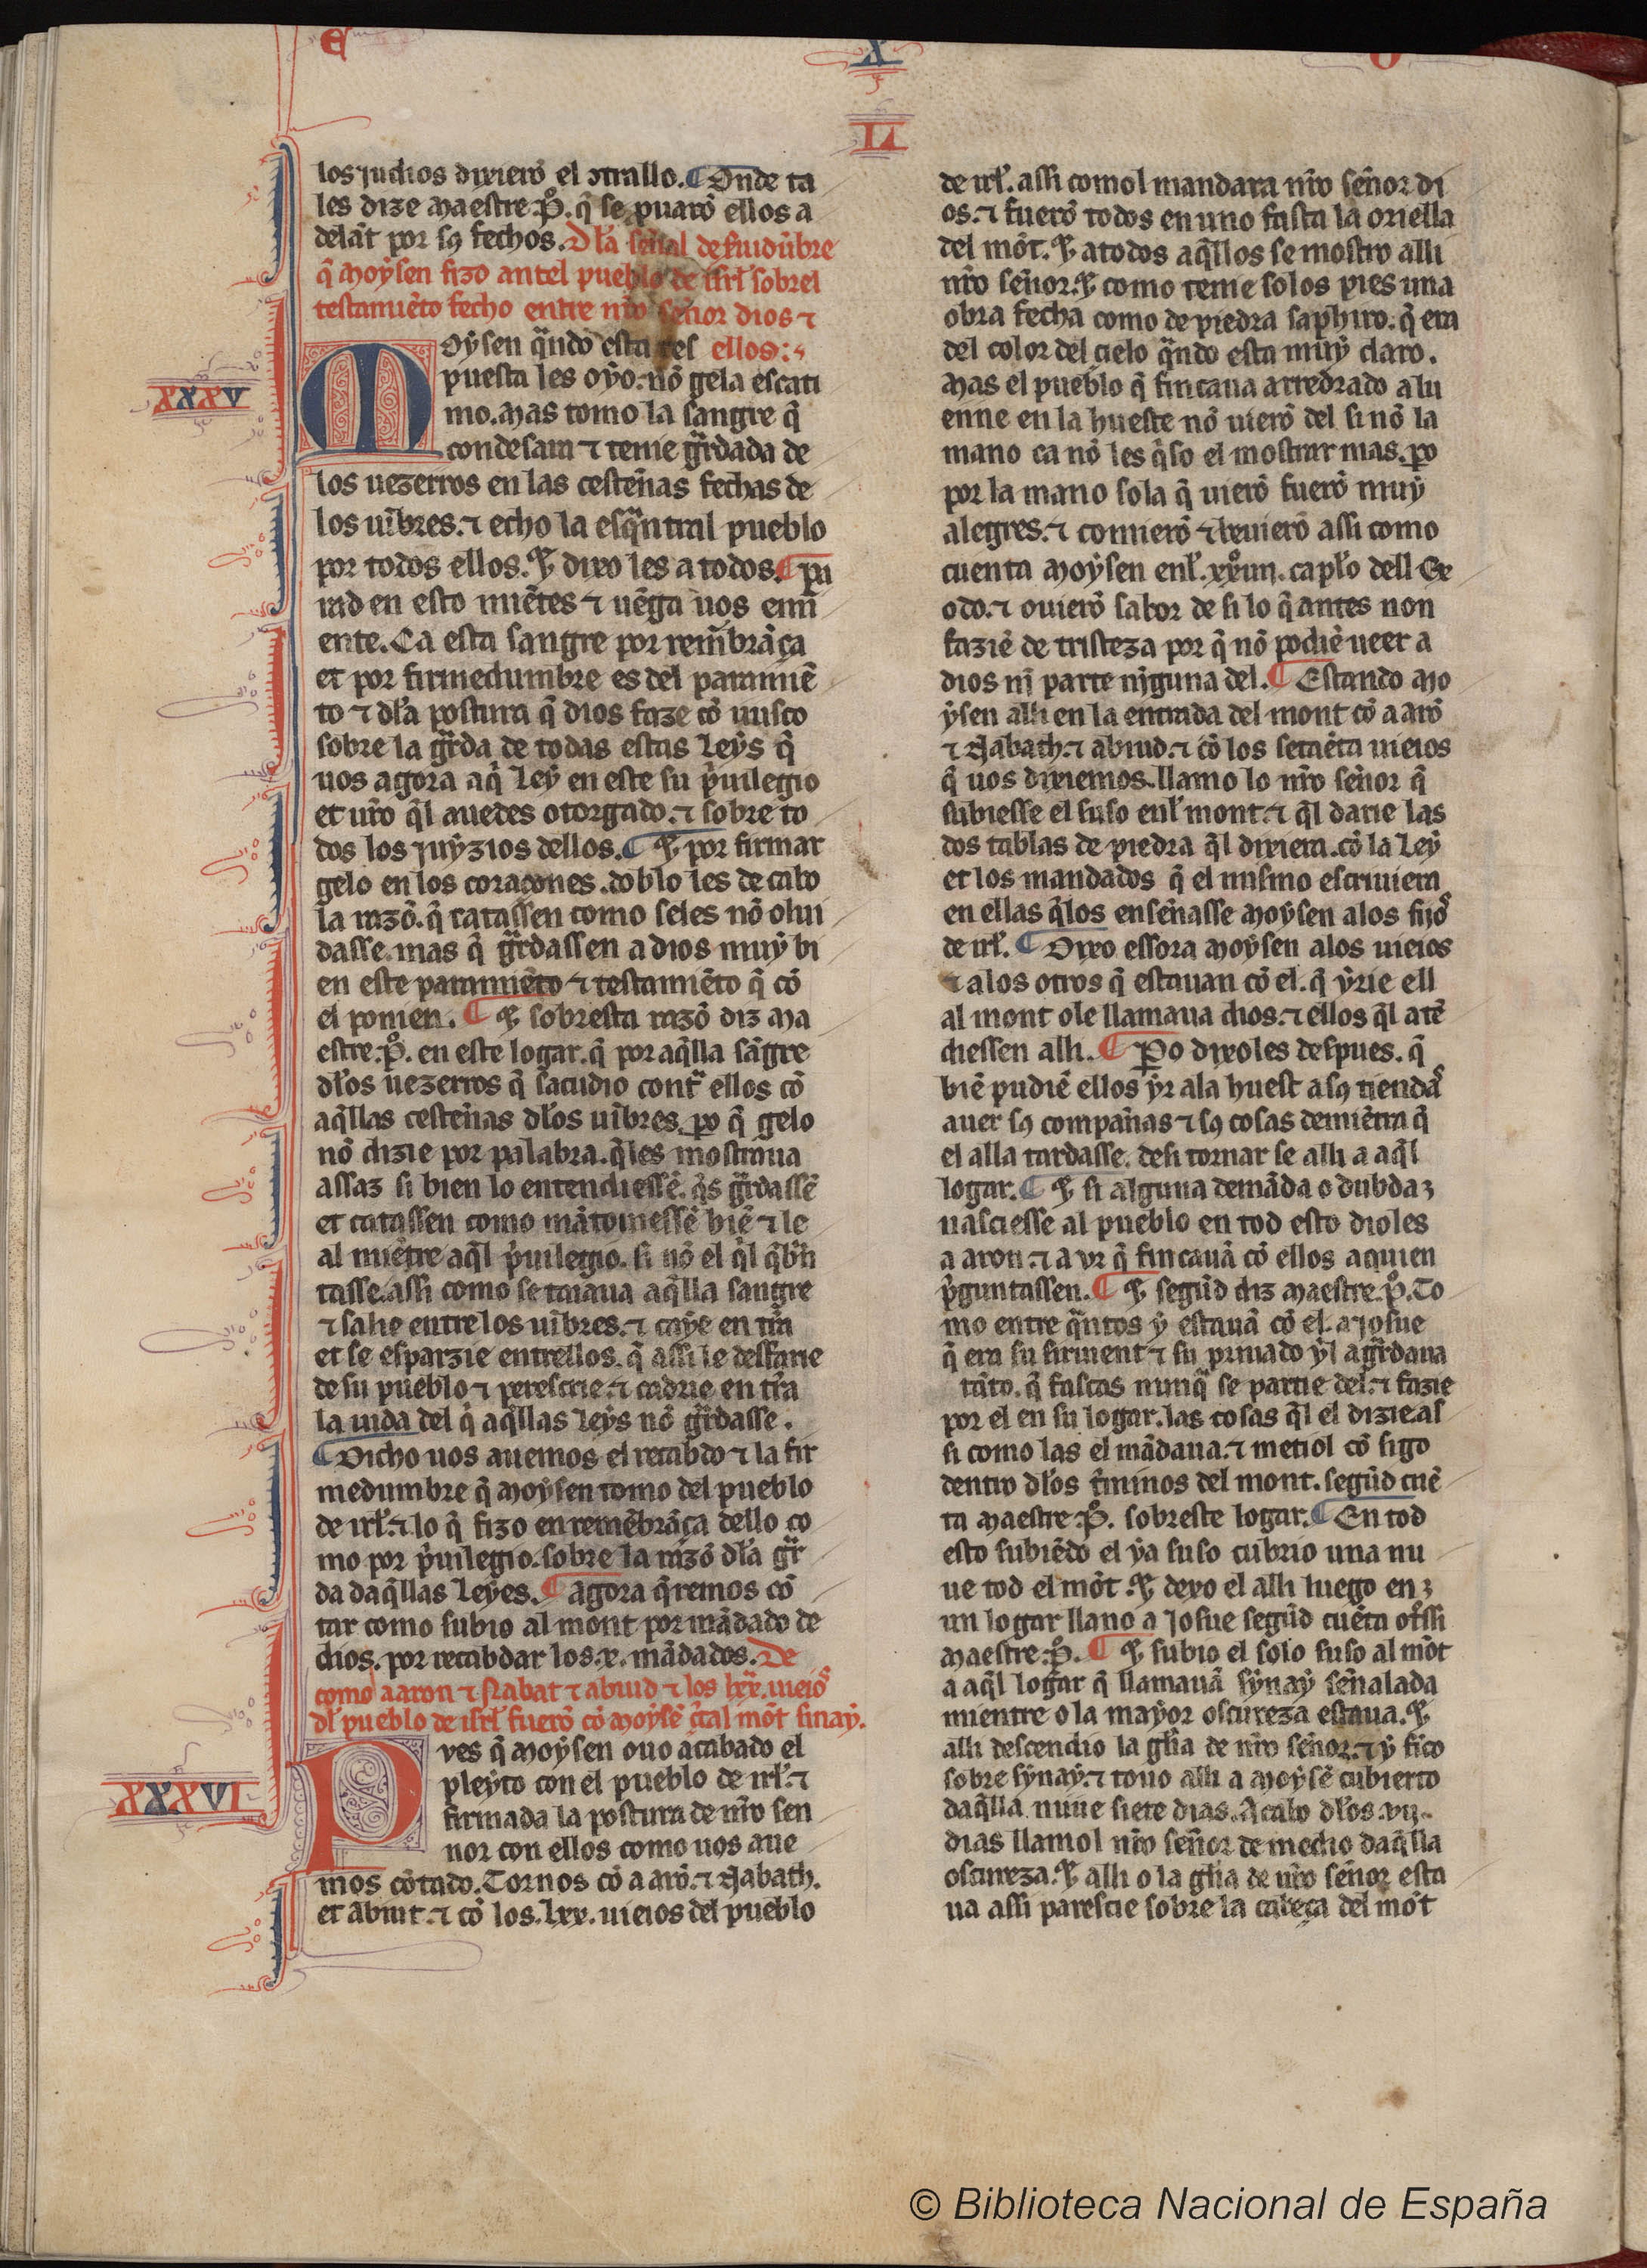 E
X
LI
O
los judios dixierõ el ↄtrallo. ¶ Onde ta
les dize maestre .P̊. q̃ se puarõ ellos a
delãt por sꝯ fechos. Dl̃a señal de firmedũbre
q̃ moẏsen fizo antel pueblo de isrl̃ sobrel
testamiẽto fecho entre nr̃o señor dios ⁊
ellos:
XXXV
Moẏsen q̃ndo esta res
puesta les oẏo. nõ gela escati
mo. mas tomo la sangre q̃
condesara ⁊ tenie gr̃dada de
los uezerros en las cesteñas fechas de
los uĩbres. ⁊ echo la esq̃ntral pueblo
por todos ellos. ⁊ dixo les a todos. ¶ pa
rad en esto miẽtes ⁊ uẽga uos emĩ
ente. Ca esta sangre por remẽbrãça
et por firmedumbre es del paramiẽ
to ⁊ dl̃a postura q̃ dios faze cõ uusco
sobre la gr̃da de todas estas leẏs q̃
uos agora aq̃ leẏ en este su p̃uilegio
et ur̃o q̃l auedes otorgado. ⁊ sobre to
dos los juẏzios dellos. ¶ ⁊ por firmar
gelo en los coraçones. doblo les de cabo
la razõ. q̃ catassen como seles nõ olui
dasse. mas q̃ gr̃dassen a dios muẏ bi
en este paramiẽto ⁊ testamiẽto q̃ cõ
el ponien. ¶ ⁊ sobresta razõ diz ma
estre .P̊. en este logar. q̃ por aq̃lla sãgre
dl̃os uezerros q̃ sacudio contr̃ ellos cõ
aq̃llas cesteñas dl̃os uĩbres. po q̃ gelo
nõ dizie por palabra. q̃les mostraua
assaz si bien lo entendiessẽ. q̃s gr̃dassẽ
et catassen como mãtouiessẽ biẽ ⁊ le
al miẽtre aq̃l p̃uilegio. si nõ el q̃l q̃brã
tasse. assi como se taiaua aq̃lla sangre
⁊ salie entre los uĩbres. ⁊ caẏe en tr̃a
et se esparzie entrellos. q̃ assi le desfarie
de su pueblo ⁊ perescrie. ⁊ cadrie en tr̃a
la uida del q̃ aq̃llas leẏs nõ gr̃dasse.
¶ Dicho uos auemos el recabdo ⁊ la fir
medumbre q̃ moẏsen tomo del pueblo
de irl̃. ⁊ lo q̃ fizo en remẽbrãça dello co
mo por p̃uilegio. sobre la razõ dl̃a gr̃
da daq̃llas leẏes. ¶ agora q̃remos cõ
tar como subio al mont por mãdado de
dios. por recabdar los .x. mãdados. De
como aaron ⁊ Nabat ⁊ abiud ⁊ los .lxx. uieios
dl̃ pueblo de isrl̃ fuerõ cõ moẏsẽ cõtal mõt sinaẏ.
XXXVI
Pves q̃ moẏsen ouo acabado el
pleẏto con el pueblo de irl̃. ⁊
firmada la postura de nr̃o sen
nor con ellos como uos aue
mos cõtado. Tornos cõ aarõ. ⁊ Nabath.
et abiut. ⁊ cõ los .lxx. uieios del pueblo
de irl̃. assi comol mandara nr̃o señor di
os. ⁊ fuerõ todos en uno fasta la oriella
del mõt. ⁊ atodos aq̃llos se mostro alli
nr̃o señor. ⁊ como tenie solos pies una
obra fecha como de piedra saphiro. q̃ era
del color del cielo q̃ndo esta muẏ claro.
Mas el pueblo q̃ fincaua arredrado alu
enne en la hueste nõ uierõ del si nõ la
mano ca nõ les q̃so el mostrar mas. po
por la mano sola q̃ uierõ fuerõ muẏ
alegres. ⁊ comierõ ⁊ beuierõ assi como
cuenta moẏsen enl̃ .xx̊iiij. capl̃o dell Ex
odo. ⁊ ouierõ sabor de si lo q̃ antes non
faziẽ de tristeza por q̃ nõ podiẽ ueer a
dios nj parte njguna del. ¶ Estando mo
ẏsen alli en la entrada del mont cõ aarõ
⁊ Nabath. ⁊ abiud. ⁊ cõ los setaẽta uieios
q̃ uos dixiemos. llamo lo nr̃o señor q̃
subiesse el suso enl̃ mont. ⁊ q̃l darie las
dos tablas de piedra q̃l dixiera. cõ la leẏ
et los mandados q̃ el mismo escriuiera
en ellas q̃los enseñasse moẏsen alos fijos
de irl̃. ¶ Dixo essora moẏsen alos uieios
⁊ alos otros q̃ estauan cõ el. q̃ ẏrie ell
al mont ole llamaua dios. ⁊ ellos q̃l atẽ
diessen alli. ¶ Po dixoles despues. q̃
biẽ pudiẽ ellos ẏr ala huest a sꝯ tiendas
auer sꝯ compañas ⁊ sꝯ cosas demiẽtra q̃
el alla tardasse. desi tornar se alli a aq̃l
logar. ¶ ⁊ si alguna demãda o dubda
nasciesse al pueblo en tod esto dioles
a aron. ⁊ a vr q̃ fincauã cõ ellos aquien
p̃guntassen. ¶ ⁊ segũd diz maestre .P̊. To
mo entre q̃ntos ẏ estauã cõ el. a josue
q̃ era su siruient ⁊ su priuado ẏl agr̃daua
tãto. q̃ fascas nunq̃ se partie del. ⁊ fazie
por el en su logar. las cosas q̃l el dizie as
si como las el mãdaua. ⁊ metiol cõ sigo
dentro dl̃os t̃minos del mont. segũd cuẽ
ta maestre .P̊. sobreste logar. ¶ En tod
esto subiẽdo el ẏa suso cubrio una nu
ue tod el mõt. ⁊ dexo el alli luego en
un logar llano a Josue segũd cuẽta otr̃ssi
maestre .P̊. ¶ ⁊ subio el solo suso al mõt
a aq̃l logar q̃ llamauã sẏnaẏ señalada
mientre o la maẏor oscureza estaua. ⁊
alli descendio la gl̃ia de nr̃o señor. ⁊ ẏ fico
sobre sẏnaẏ. ⁊ touo alli a moẏsẽ cubierto
daq̃lla nuue siete dias. Acabo dl̃os .vij.
dias llamol nr̃o señor de medio daq̃lla
oscureza. ⁊ alli o la gl̃ia de nr̃o señor esta
ua assi parescie sobre la cabeça del mõt
© Biblioteca Nacional de España